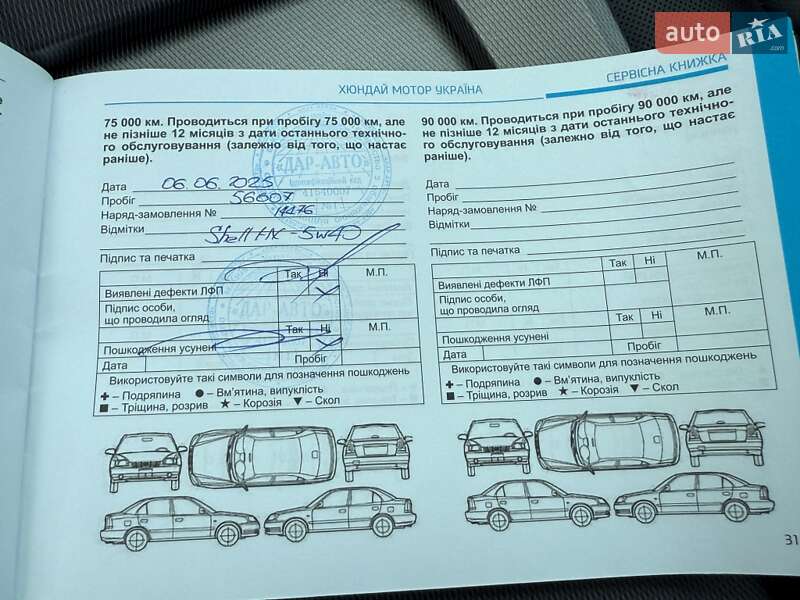 auto RIA .com
ХЮНДАЙ МОТОР УКРАЇНА
СЕРВІСНА КНИЖКА
75 000 км. Проводиться при пробігу 75 000 км, але
не пізніше 12 місяців з дати останнього технічно-
го обслуговування (залежно від того, що настає
раніше).
Дата 06.06.2025
Пробіг 56007
Наряд-замовлення № 14476
Відмітки Shell HX - 5w40
Підпис та печатка
"ДАР-АВТО"
Так Ні М.П.
Виявлені дефекти ЛФП
Підпис особи,
що проводила огляд
"ДАР-АВТО"
Так Ні М.П.
Пошкодження усунені
Дата Пробіг
Використовуйте такі символи для позначення пошкоджень
✚ – Подряпина ● – Вм'ятина, випуклість
■ – Тріщина, розрив ★ – Корозія ▼ – Скол
90 000 км. Проводиться при пробігу 90 000 км, але
не пізніше 12 місяців з дати останнього технічно-
го обслуговування (залежно від того, що настає
раніше).
Дата
Пробіг
Наряд-замовлення №
Відмітки
Підпис та печатка
Так Ні М.П.
Виявлені дефекти ЛФП
Підпис особи,
що проводила огляд
Так Ні М.П.
Пошкодження усунені
Дата Пробіг
Використовуйте такі символи для позначення пошкоджень
✚ – Подряпина ● – Вм'ятина, випуклість
■ – Тріщина, розрив ★ – Корозія ▼ – Скол
31